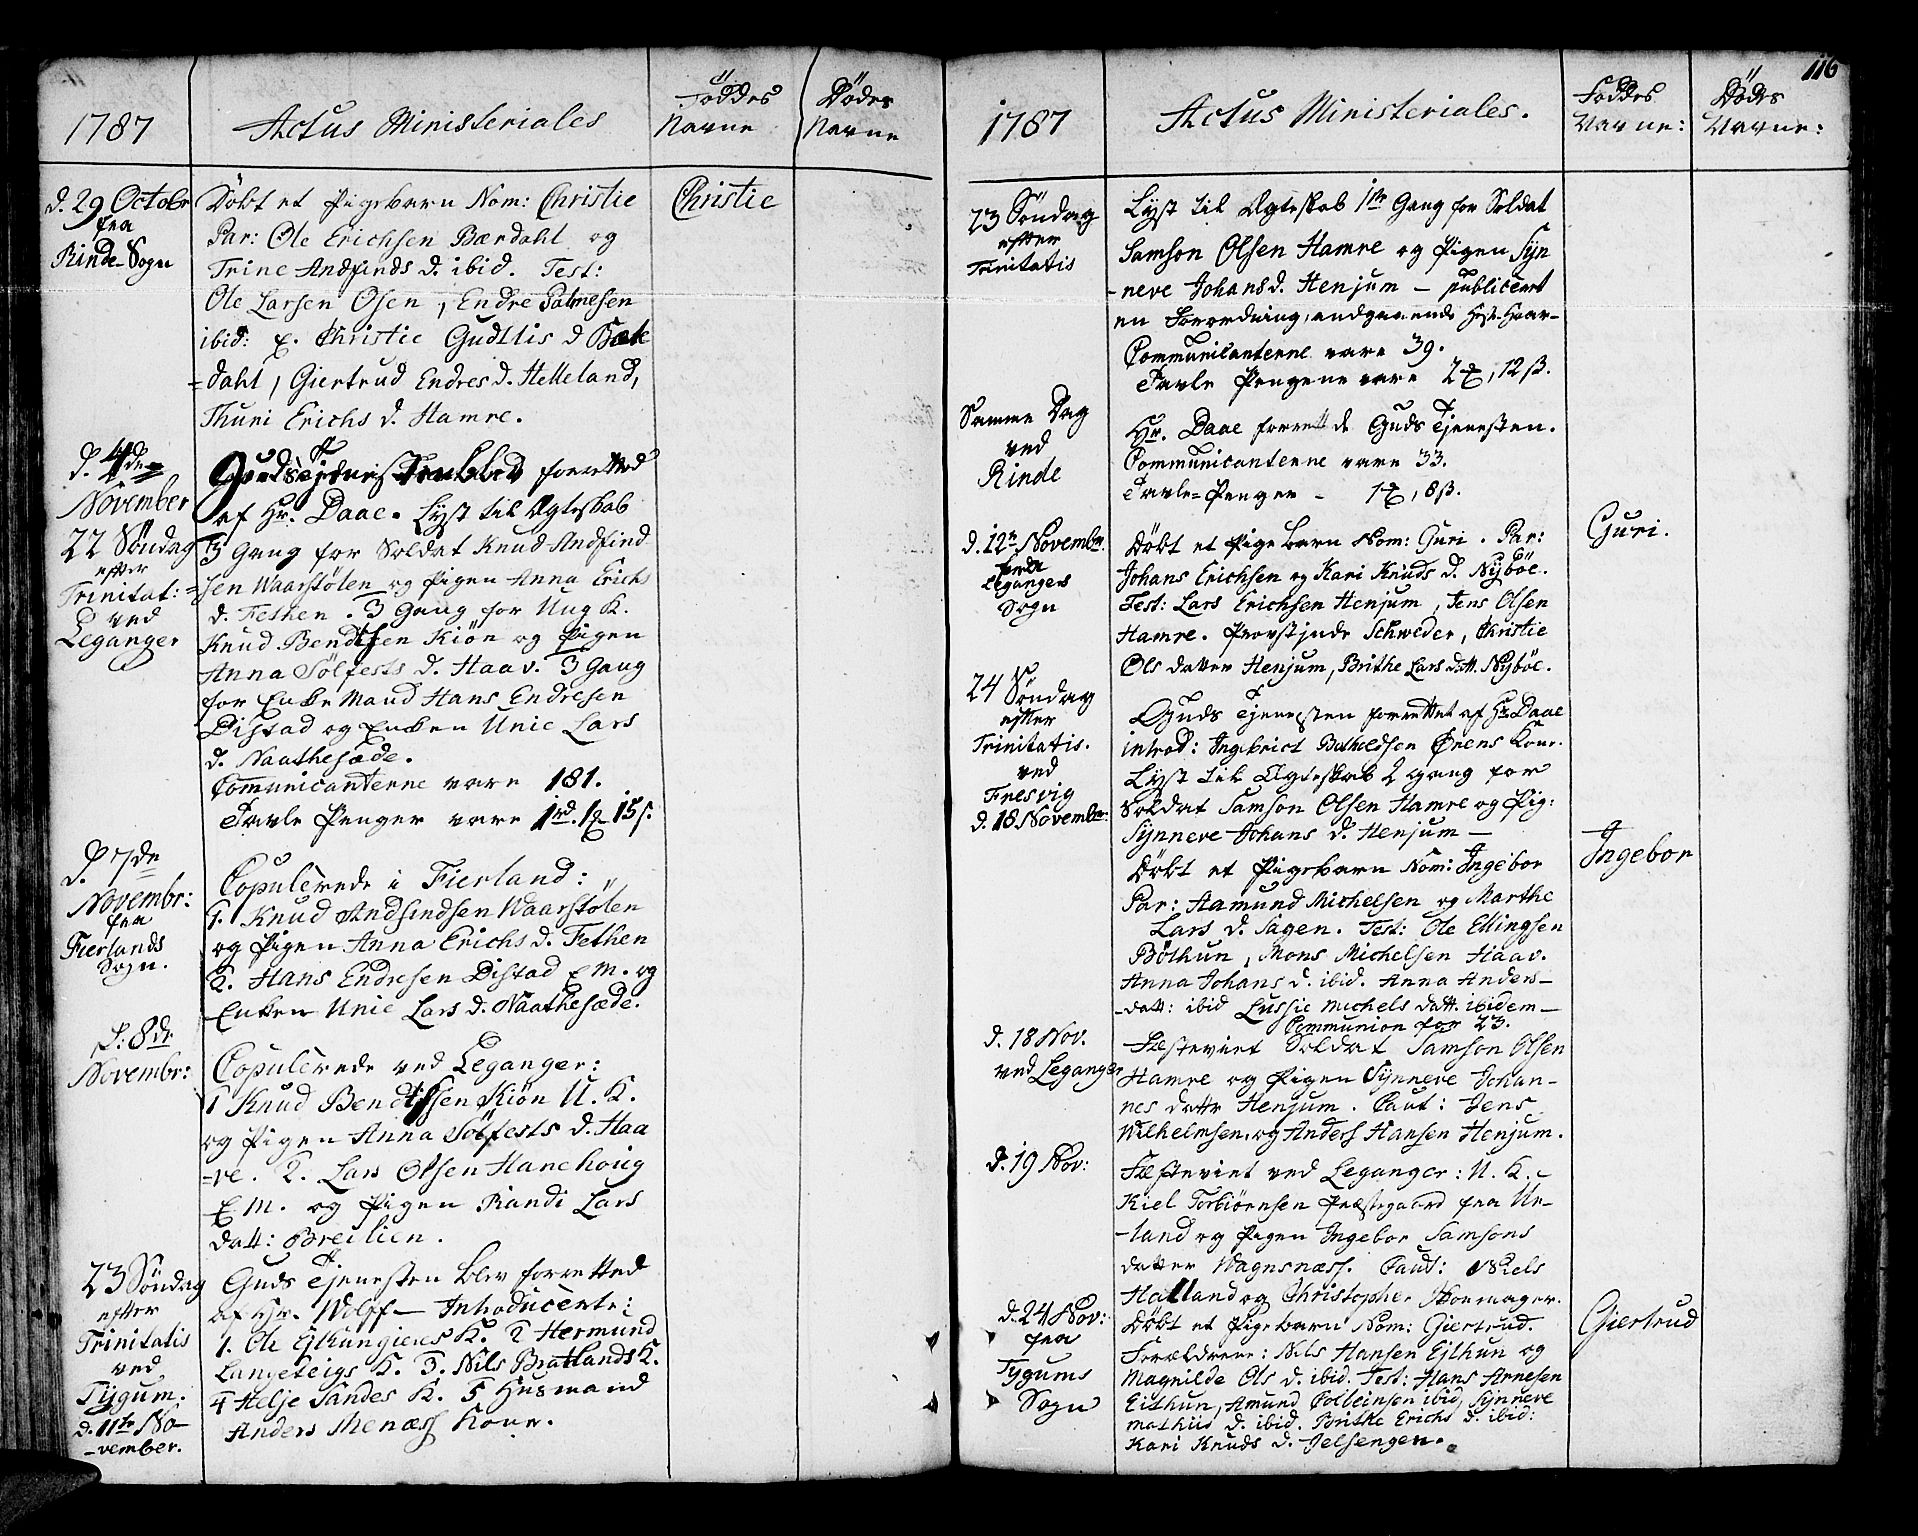 1787
Actus Ministeriales
Föddes
Navne
Dödes
Navne
d. 29 Octobr
fra
Rinde-Sogn
Döbt et Pigebarn Nom: Christie
Par: Ole Erichsen Bærdahl og
Trine Andfinds d. ibid. Test:
Ole Larsen Osen, Endre Palmesen
ibid: Christie Gudllis d
-dahl, Giertrud Endres d. Helleland,
Thuri Erichs d. Hamre.
Christie
d. 4de
November
22 Söndag
efter
Trinitat:
ved
Leganger
Gudstjenesten blev forretted
af Hr. Daae. Lyst til Ægteskab
3 Gang for Soldat Knud Andfind-
sen Waarstölen og Pigen Anna Erichs
d. Fethen. 3 Gang for Ung K.
Knud Bendtsen Kiön og Pigen
Anna Sölfests d. Haav. 3 Gang
for Enke Mand Hans Endresen
Distad og Enken Unie Lars
d. Naathesæde.
Comunicanterne vare 181.
Tavle Penger vare 1rd. 15s.
d. 7de
Novembr:
fra
Fierlands
Sogn.
Copulerede i Fierland:
1. Knud Andfindsen Waarstölen
og Pigen Anna Erichs d. Fethen
2. Hans Endresen Distad E M. og
Enken Unie Lars d. Naathesæde.
d: 8de
Novembr:
Copulerede ved Leganger:
1 Knud Bendtssen Kiön U. K.
og Pigen Anna Sölfests d. Haa
-ve. 2. Lars Olsen Hanehoug
E M. og Pigen Randi Lars
datt: Breilien.
23 Söndag
efter
Trinitatis
ved
Tygum.
d. 11te No-
-vember.
Guds Tjenesten blev forretted
af Hr. Wolff - Introducerte:
1. Ole K. 2 Hermund
Langeteigs K. 3. Nils Bratlands K.
4 Helje Sandes K. 5 Husmand
Anders Menæss Kone.
116
1787
Actus Ministeriales.
Foddes
Navne:
Dödes
Navne:
23 Söndag
efter
Trinitatis
Lyst til Ægteskab 1te Gang for Soldat
Samson Olsen Hamre og Pigen Syn
-neve Johans d. Henjum - publicert
en Forordning, andgaaende Heste-Haar-
Communicanterne vare 39.
Tavle Pengene vare 2, 12 ß.
Samme Dag
ved
Rinde
Hr. Daae forrettede Guds Tjenesten.
Communicanterne vare 33.
Tavle-Penger - 1, 8 ß.
d. 12te Novembr.
fra
Legangers
Sogn
Döbt et Pigebarn Nom: Guri. Par:
Johans Erichsen og Kari Knuds d. Nyböe.
Test: Lars Erichsen Henjum, Jens Olsen
Hamre. Provstinde Schweder, Christie
Ols datter Henjum, Brithe Lars datt. Nyböe.
Guri.
24 Söndag
efter
Trinitatis.
ved
Fresvig
d. 18 Novembr:
Guds Tjenesten forrettet af Hr Daae
introd: Ingebrict Botholdsen Ørens Kone.
Lyst til Ægteskab 2 gang for
Soldat Samson Olsen Hamre og Pig:
Synneve Johans d. Henjum -
Döbt et Pigebarn Nom: Ingebor
Par: Aamund Michelsen og Marthe
Lars d. Sagen. Test: Ole Ellingsen
Böthun, Mons Michelsen Haav.
Anna Johans d. ibid. Anna Anders-
-datt: ibid Lussie Michels datt. ibidem -
Communion for 23.
Ingebor
d. 18 Nov.
ved Leganger
Festeviet Soldat Samson Olsen
Hamre og Pigen Synneve Johan-
nes datter Henjum. Caut: Jens
Wilhelmsen, og Anders Hansen Henjum.
d. 19 Nov:
Festeviet ved Leganger: U. K. -
Kiel Torbiörnsen Præstegaard fra Ur-
-land og Pigen Ingebor Samsons
datter Wagnsnæss. Caut: Niels
Halland og Christopher Skoemager.
d. 24 Nov:
fra
Tygums
Sogn
Döbt et Pigebarn Nom: Giertrud.
Forældrene: Nils Hansen Ejthun og
Magnilde Ols d. ibid. Test: Hans Arnesen
Eithun, Amund Colbeinsen ibid, Synneve
Mathiis d. ibid. Brithe Erichs d. ibid:
Kari Knuds d. Jelsengen.
Giertrud